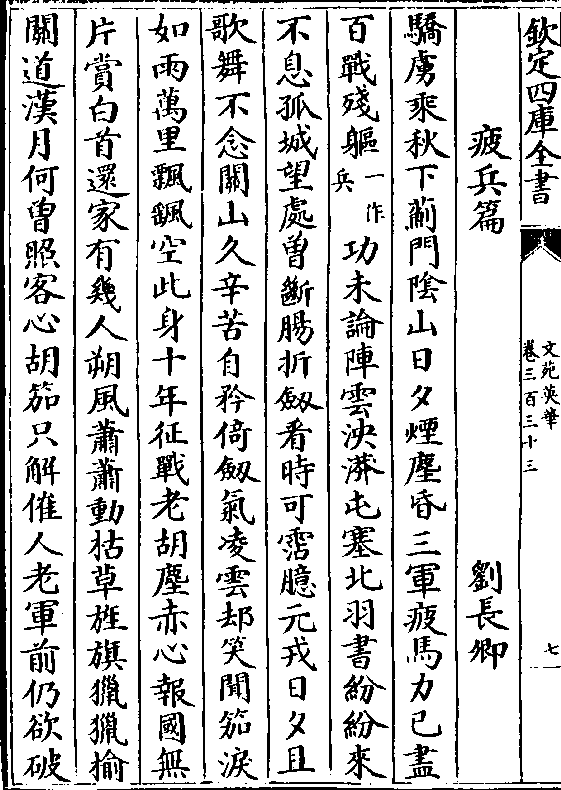 欽定四庫全書
文苑英華
卷三百三十三
七
疲兵篇
劉長卿
驕虜乘秋下薊門陰山日夕煙塵昏三軍疲馬力已盡
百戰殘軀一作兵功未論陣雲泱漭屯塞北羽書紛紛來
不息孤城望處曽斷腸折劔看時可霑臆元戎日夕且
歌舞不念關山久辛苦自矜倚劔氣凌雲却笑聞笳淚
如雨萬里飄颻空此身十年征戰老胡塵赤心報國無
片賞白首還家有幾人朔風蕭蕭動枯草旌旗獵獵揄
關道漢月何曽照客心胡笳只解催人老軍前仍欲破